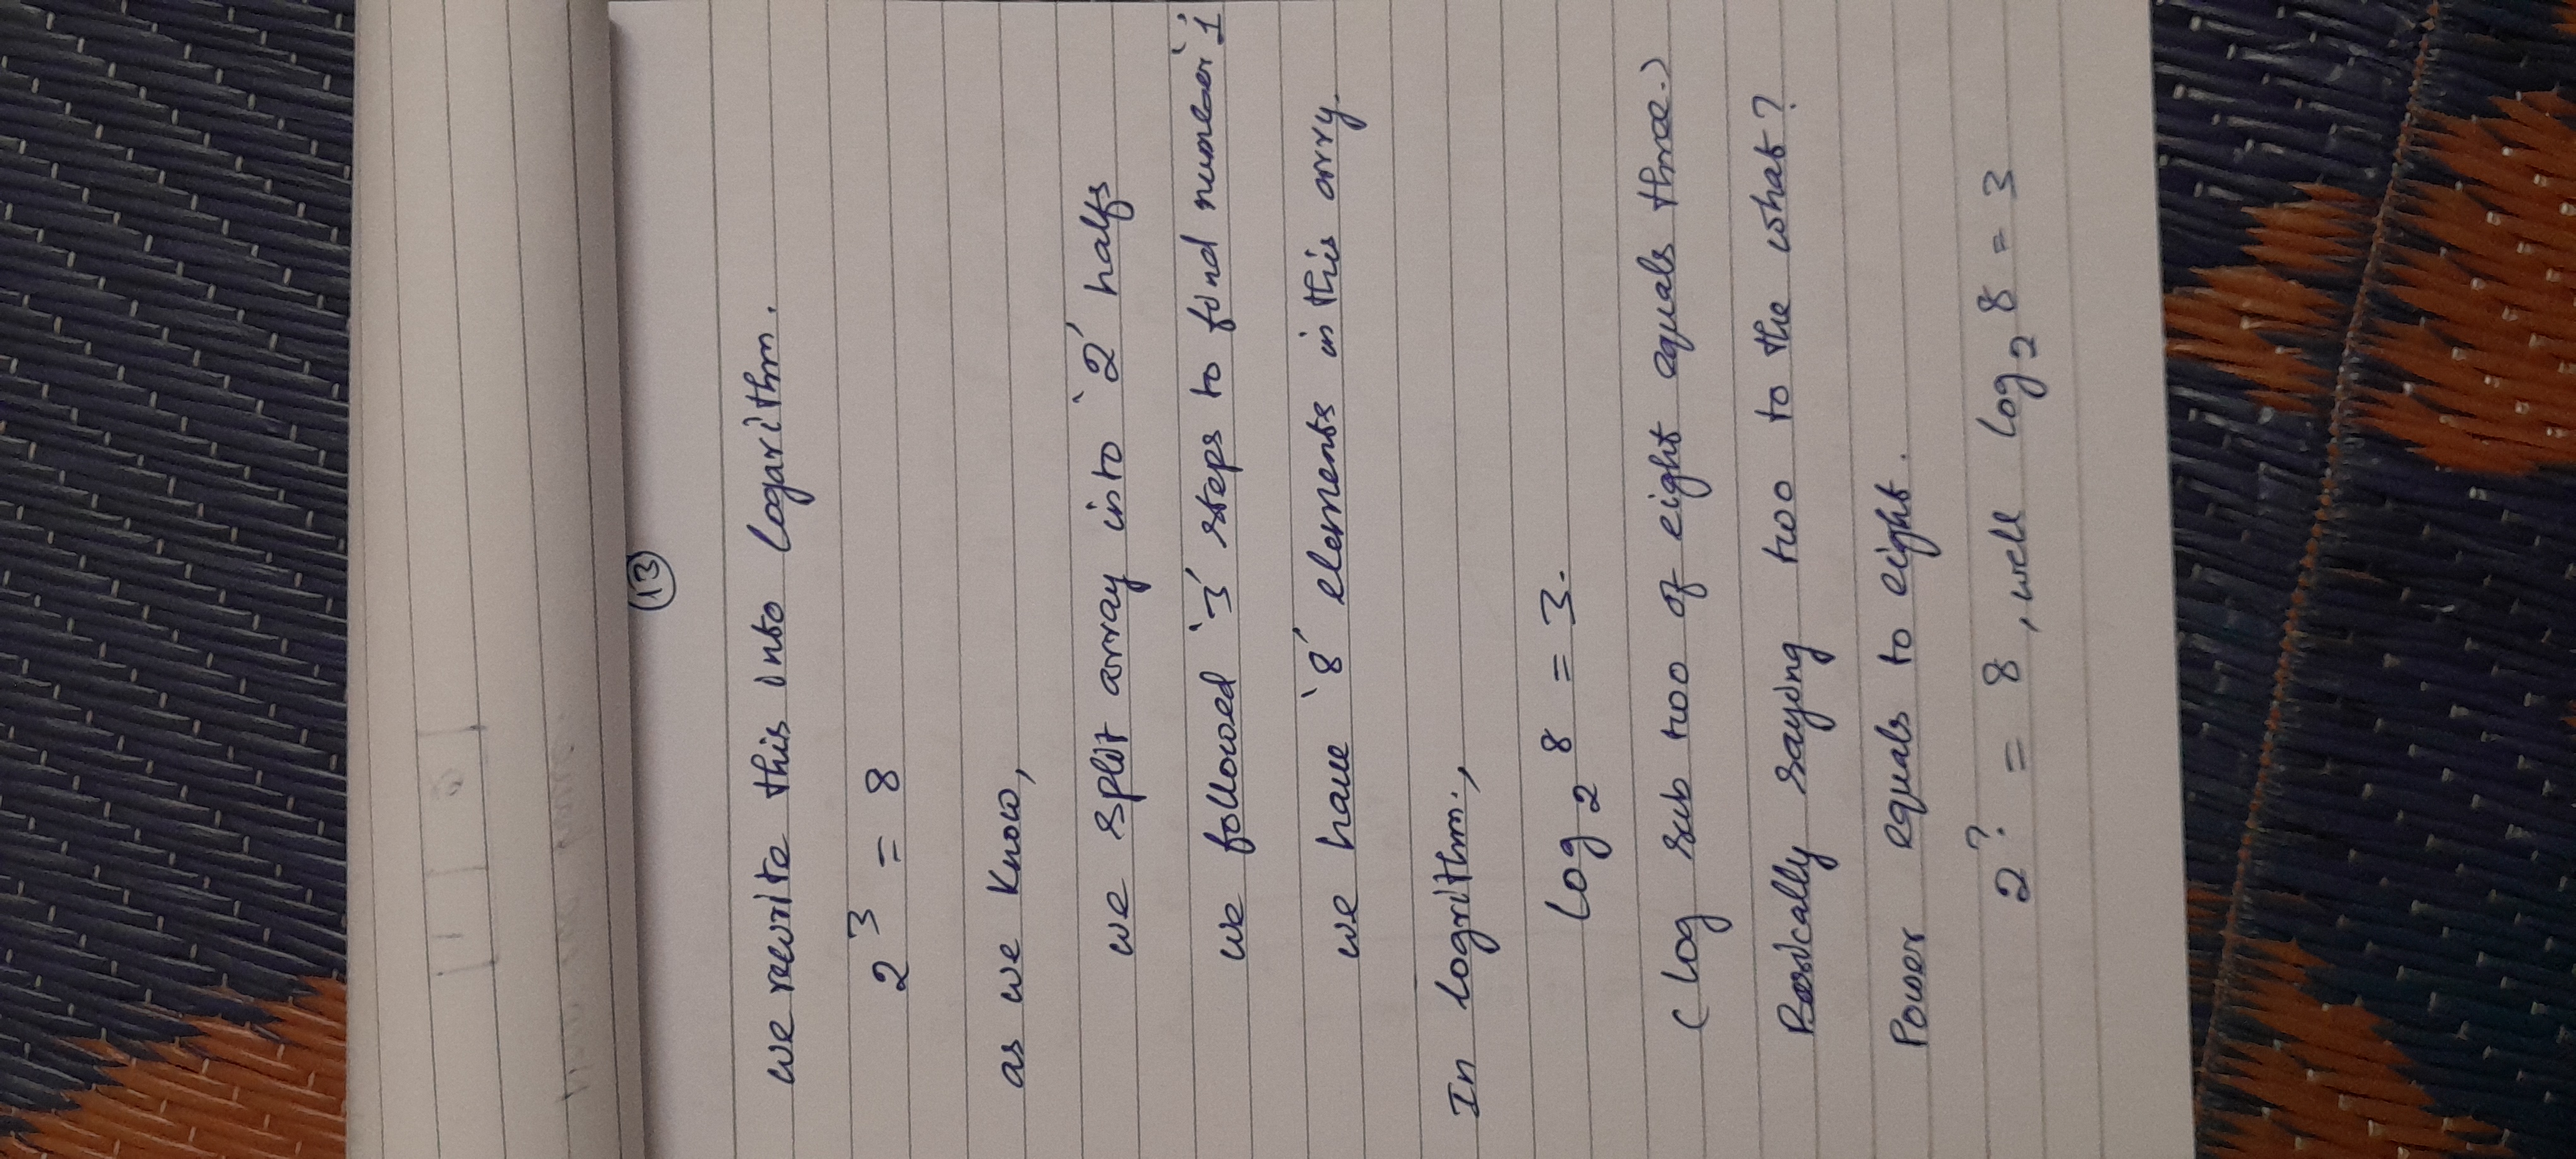 13
we rewrite this into logarithm.
2³ = 8
as we know,
we split array into '2' halfs
we followed '3' steps to find number '1
we have '8' elements in this arry.
In logrithm.,
log₂ 8 = 3.
(log sub two of eight equals three.)
Basically saying two to the what?
Power equals to eight.
2^? = 8, well log₂ 8 = 3